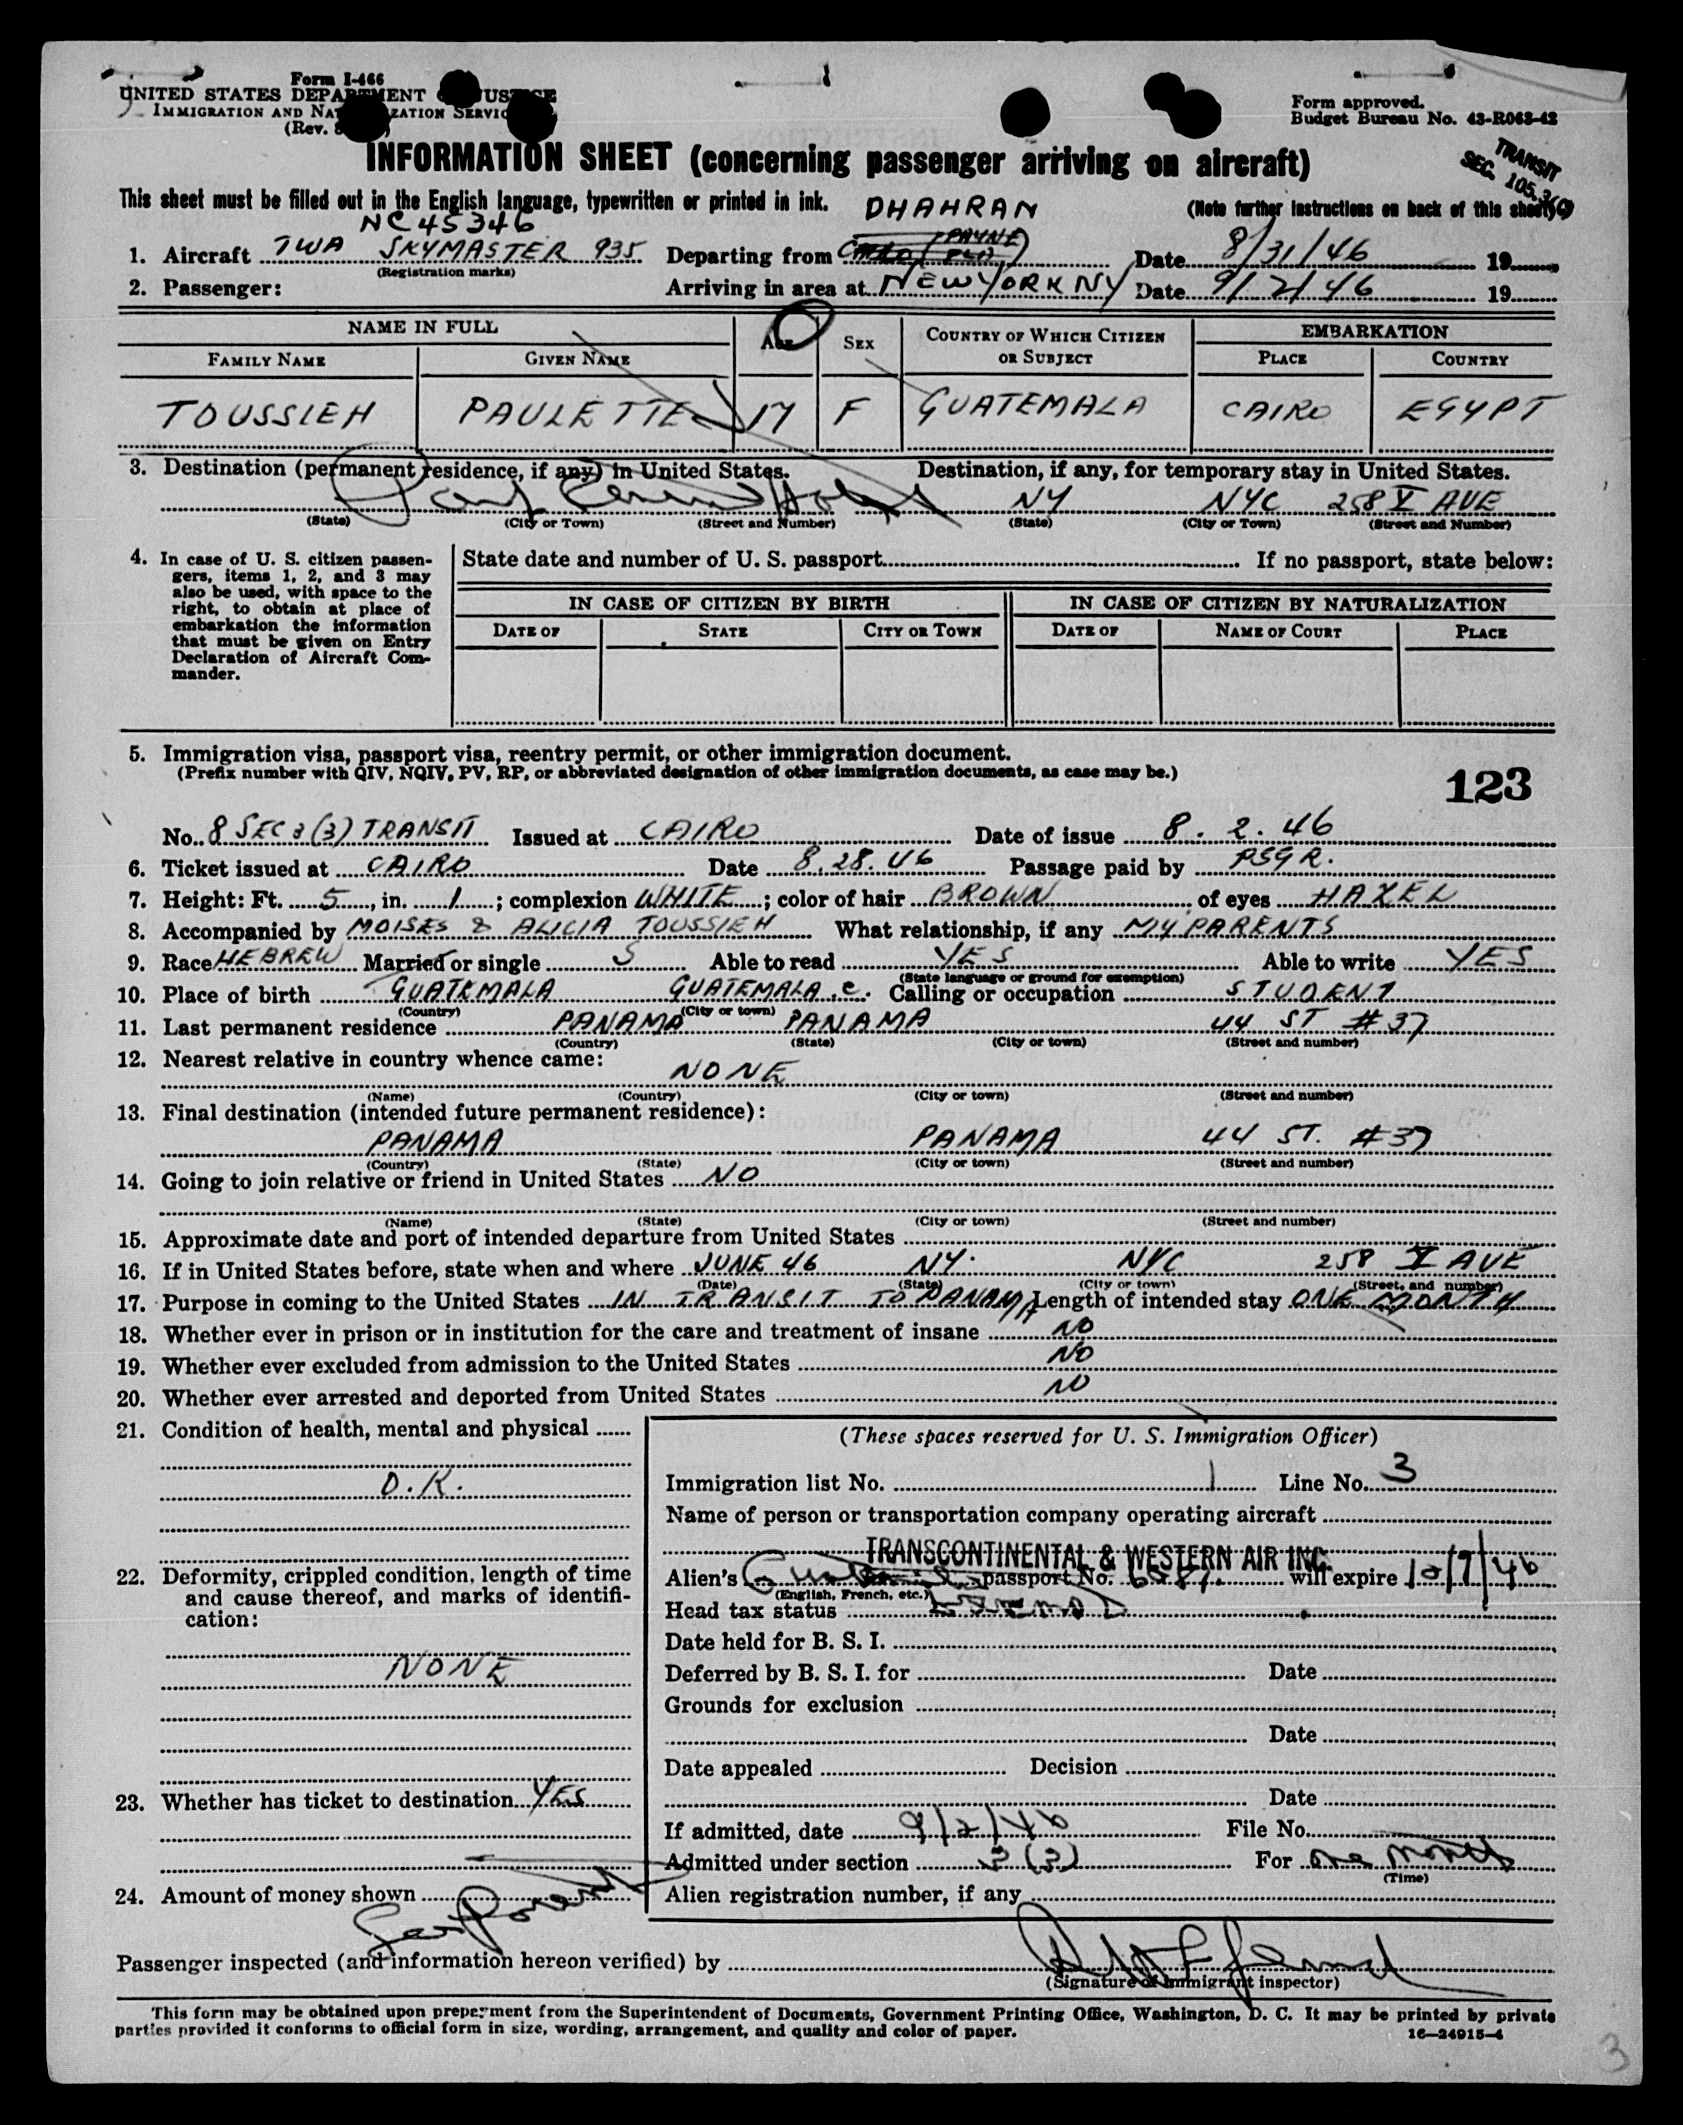 Form I-466
UNITED STATES DEPARTMENT JUSTICE
IMMIGRATION AND NATURALIZATION SERVICE
(Rev.
Form approved.
Budget Bureau No. 43-R063-42
INFORMATION SHEET (concerning passenger arriving on aircraft)
TRANSIT
SEC. 105.3
This sheet must be filled out in the English language, typewritten or printed in ink.
DHAHRAN
(Note further instructions on back of this sheet)
NC45346
1. Aircraft TWA SKYMASTER 935 Departing from Date 8/31/46 19
(Registration marks)
2. Passenger: Arriving in area at NEW YORK NY Date 9/2/46 19
NAME IN FULL AGE SEX COUNTRY OF WHICH CITIZEN OR SUBJECT EMBARKATION
FAMILY NAME GIVEN NAME PLACE COUNTRY
TOUSSIEH PAULETTE 17 F GUATEMALA CAIRO EGYPT
3. Destination (permanent residence, if any) in United States. Destination, if any, for temporary stay in United States.
NY NYC 258 V AVE
(State) (City or Town) (Street and Number) (State) (City or Town) (Street and Number)
4. In case of U. S. citizen passen-
gers, items 1, 2, and 3 may
also be used, with space to the
right, to obtain at place of
embarkation the information
that must be given on Entry
Declaration of Aircraft Com-
mander.
State date and number of U. S. passport If no passport, state below:
IN CASE OF CITIZEN BY BIRTH IN CASE OF CITIZEN BY NATURALIZATION
DATE OF STATE CITY OR TOWN DATE OF NAME OF COURT PLACE
5. Immigration visa, passport visa, reentry permit, or other immigration document.
(Prefix number with QIV, NQIV, PV, RP, or abbreviated designation of other immigration documents, as case may be.)
123
No. 8 SEC 3 (3) TRANSIT Issued at CAIRO Date of issue 8. 2. 46
6. Ticket issued at CAIRO Date 8.28.46 Passage paid by PSGR.
7. Height: Ft. 5, in. 1; complexion WHITE; color of hair BROWN of eyes HAZEL
8. Accompanied by MOISES & ALICIA TOUSSIEH What relationship, if any MY PARENTS
9. Race HEBREW Married or single S Able to read YES Able to write YES
(State language or ground for exemption)
10. Place of birth GUATEMALA GUATEMALA.C. Calling or occupation STUDENT
(Country) (City or town)
11. Last permanent residence PANAMA PANAMA 44 ST #37
(Country) (State) (City or town) (Street and number)
12. Nearest relative in country whence came:
NONE
(Name) (Country) (City or town) (Street and number)
13. Final destination (intended future permanent residence):
PANAMA PANAMA 44 ST. #37
(Country) (State) (City or town) (Street and number)
14. Going to join relative or friend in United States NO
(Name) (State) (City or town) (Street and number)
15. Approximate date and port of intended departure from United States
16. If in United States before, state when and where JUNE 46 NY. NYC 258 V AVE
(Date) (State) (City or town) (Street, and number)
17. Purpose in coming to the United States IN TRANSIT TO PANAMA Length of intended stay ONE MONTH
18. Whether ever in prison or in institution for the care and treatment of insane NO
19. Whether ever excluded from admission to the United States NO
20. Whether ever arrested and deported from United States NO
21. Condition of health, mental and physical
O.K.
22. Deformity, crippled condition, length of time
and cause thereof, and marks of identifi-
cation:
NONE
23. Whether has ticket to destination YES
24. Amount of money shown
(These spaces reserved for U. S. Immigration Officer)
Immigration list No. 1 Line No. 3
Name of person or transportation company operating aircraft
TRANSCONTINENTAL & WESTERN AIR INC.
Alien's passport No. will expire
(English, French, etc.)
Head tax status
Date held for B. S. I.
Deferred by B. S. I. for Date
Grounds for exclusion
Date
Date appealed Decision
Date
If admitted, date 9/2/46 File No.
Admitted under section 3 (3) For one month
(Time)
Alien registration number, if any
Passenger inspected (and information hereon verified) by
(Signature of immigrant inspector)
This form may be obtained upon prepayment from the Superintendent of Documents, Government Printing Office, Washington, D. C. It may be printed by private
parties provided it conforms to official form in size, wording, arrangement, and quality and color of paper. 16—24915-4
3